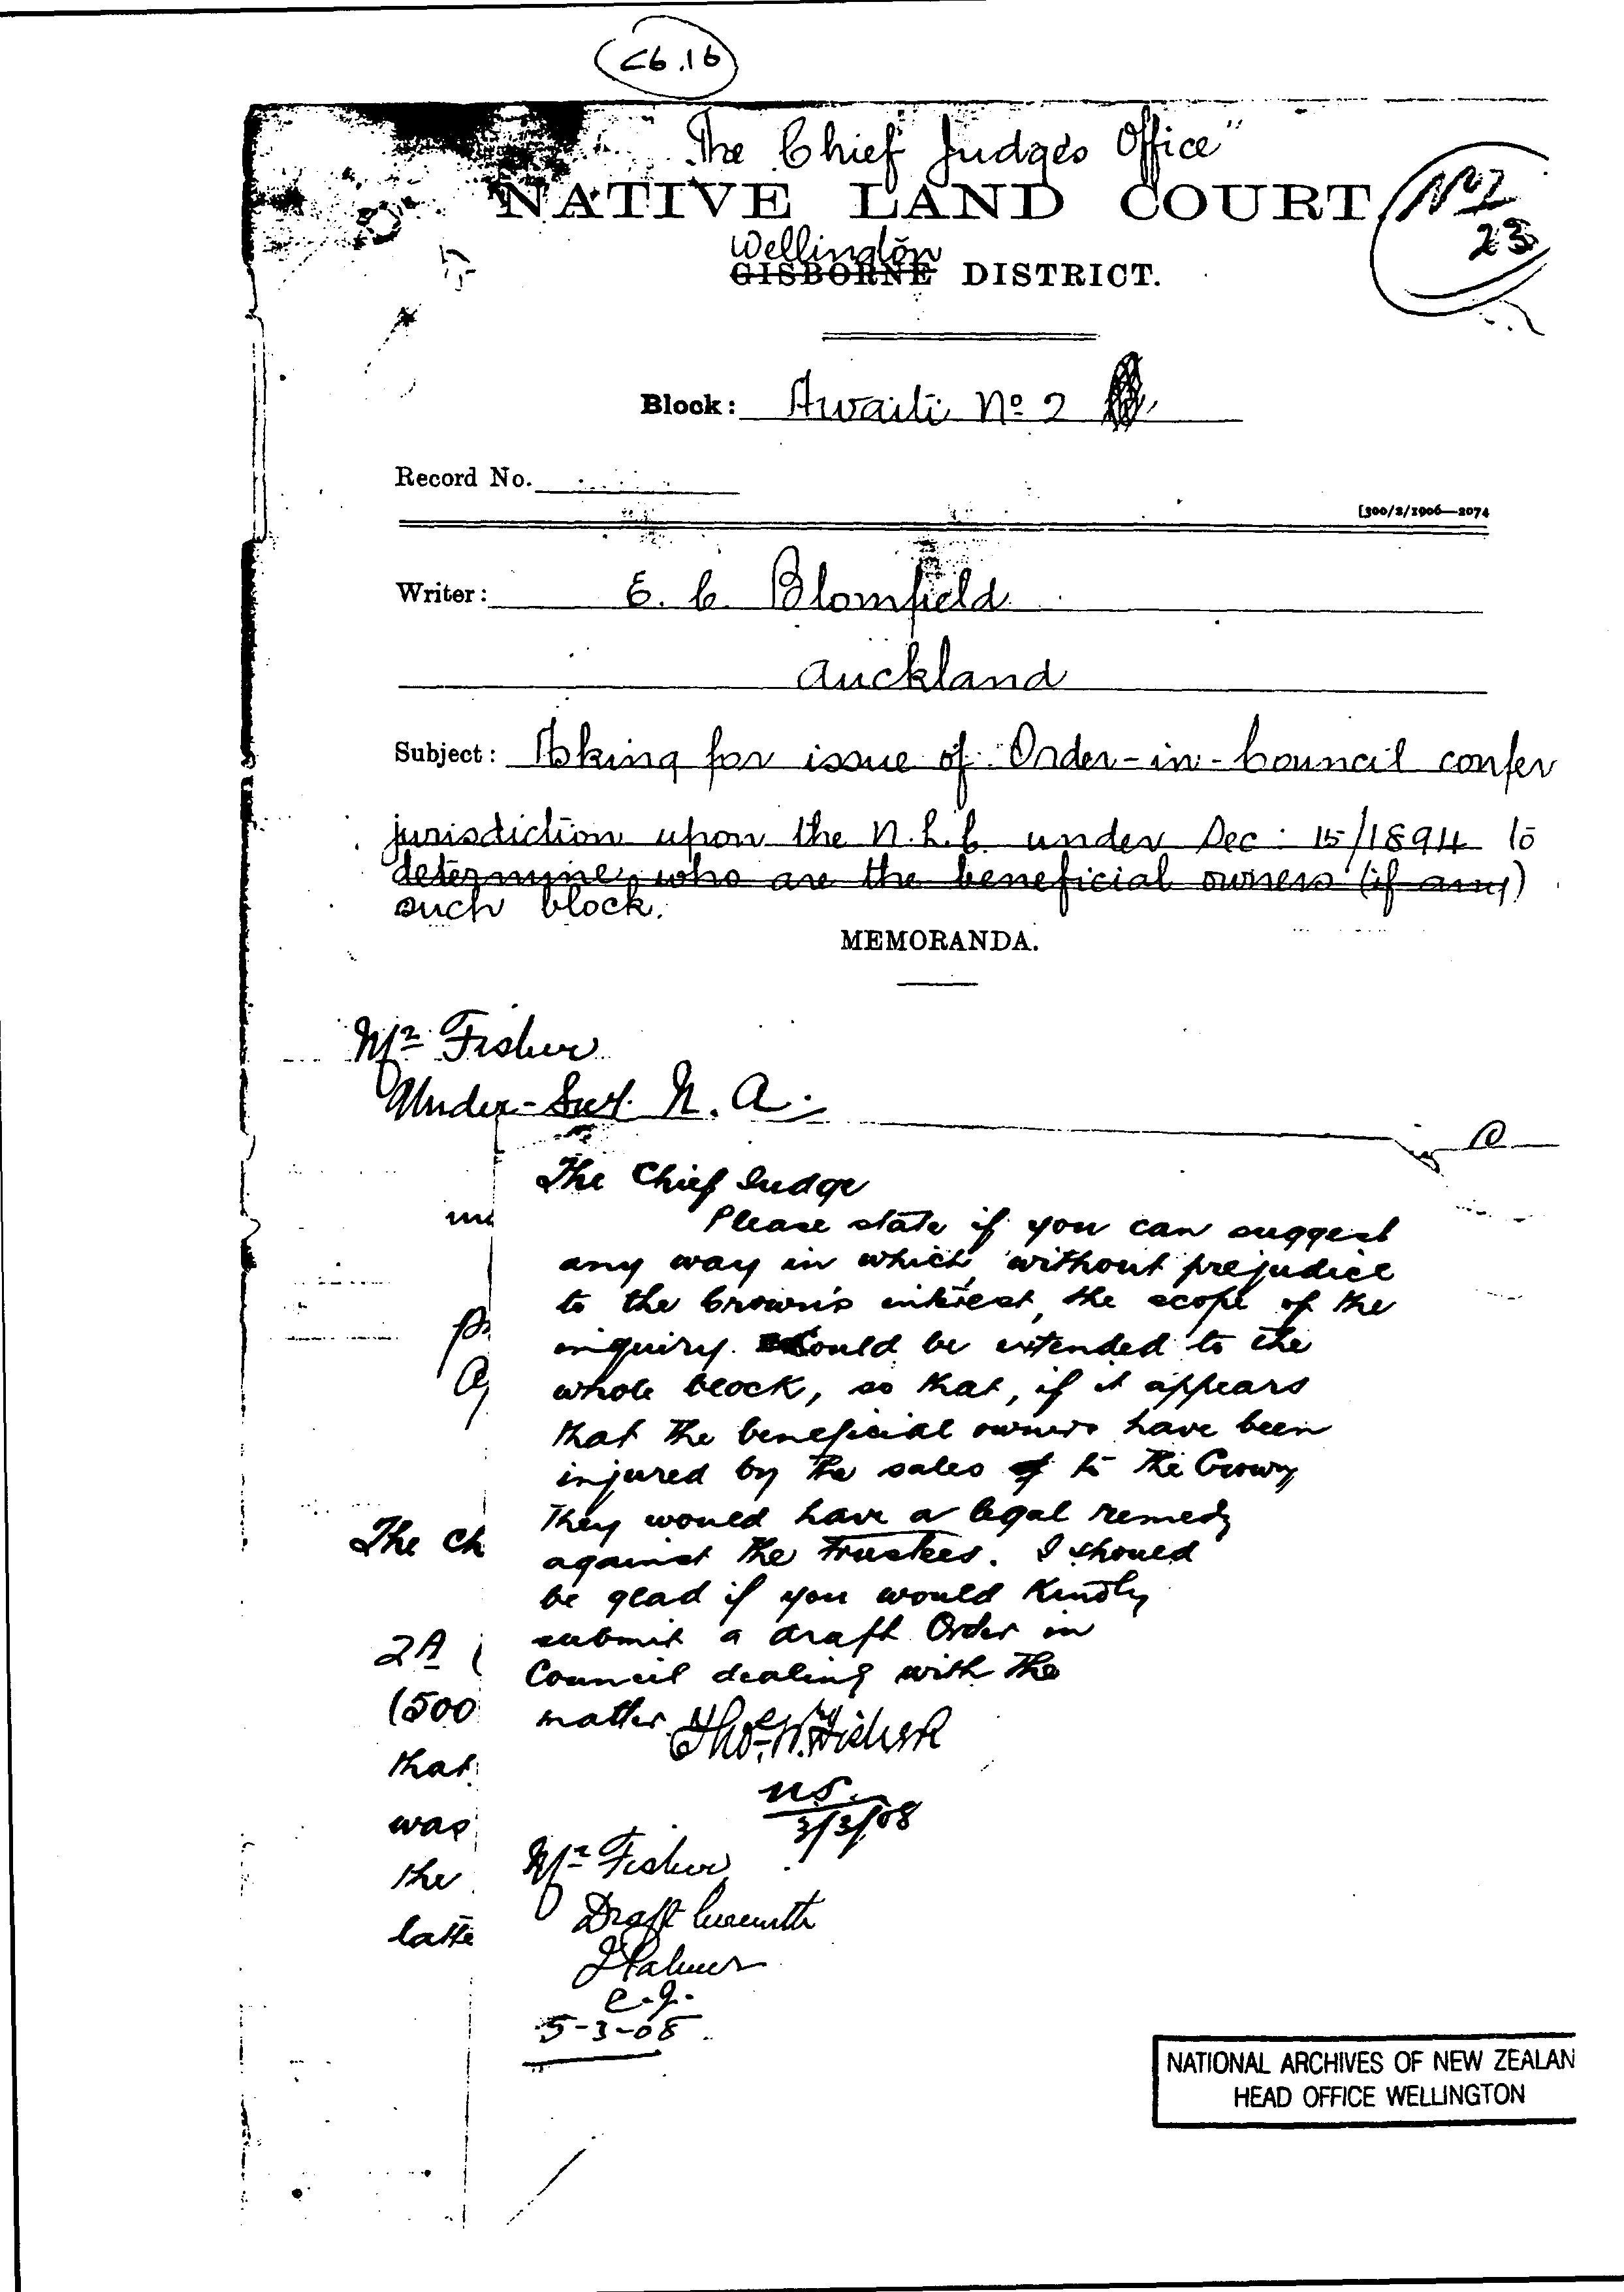 C6.16
"The Chief Judge's Office"
NATIVE LAND COURT
Wellington
GISBORNE DISTRICT.
23
Block: Awaiti No 2
Record No.
[300/2/1906—2074
Writer: E. C. Blomfield
Auckland
Subject: Asking for issue of Order-in-Council confer
jurisdiction upon the N.L.C. under Sec: 15/1894 to
determine who are the beneficial owners (if any)
such block.
MEMORANDA.
Mr Fisher
Under-Secy. N. A.
The Chief Judge
Please state if you can suggest
any way in which, without prejudice
to the Crown's interest, the scope of the
inquiry could be extended to the
whole block, so that, if it appears
that the beneficial owners have been
injured by the sales to the Crown,
They would have a legal remedy
against the Trustees. I should
be glad if you would kindly
submit a draft Order in
Council dealing with the
matter.
Thos. W. Fisher
U.S.
3/3/08
The Ch
2A
(500
that
was
the
latte
Mr Fisher
Draft herewith
J Palmer
C.J.
5-3-08
NATIONAL ARCHIVES OF NEW ZEALAN
HEAD OFFICE WELLINGTON